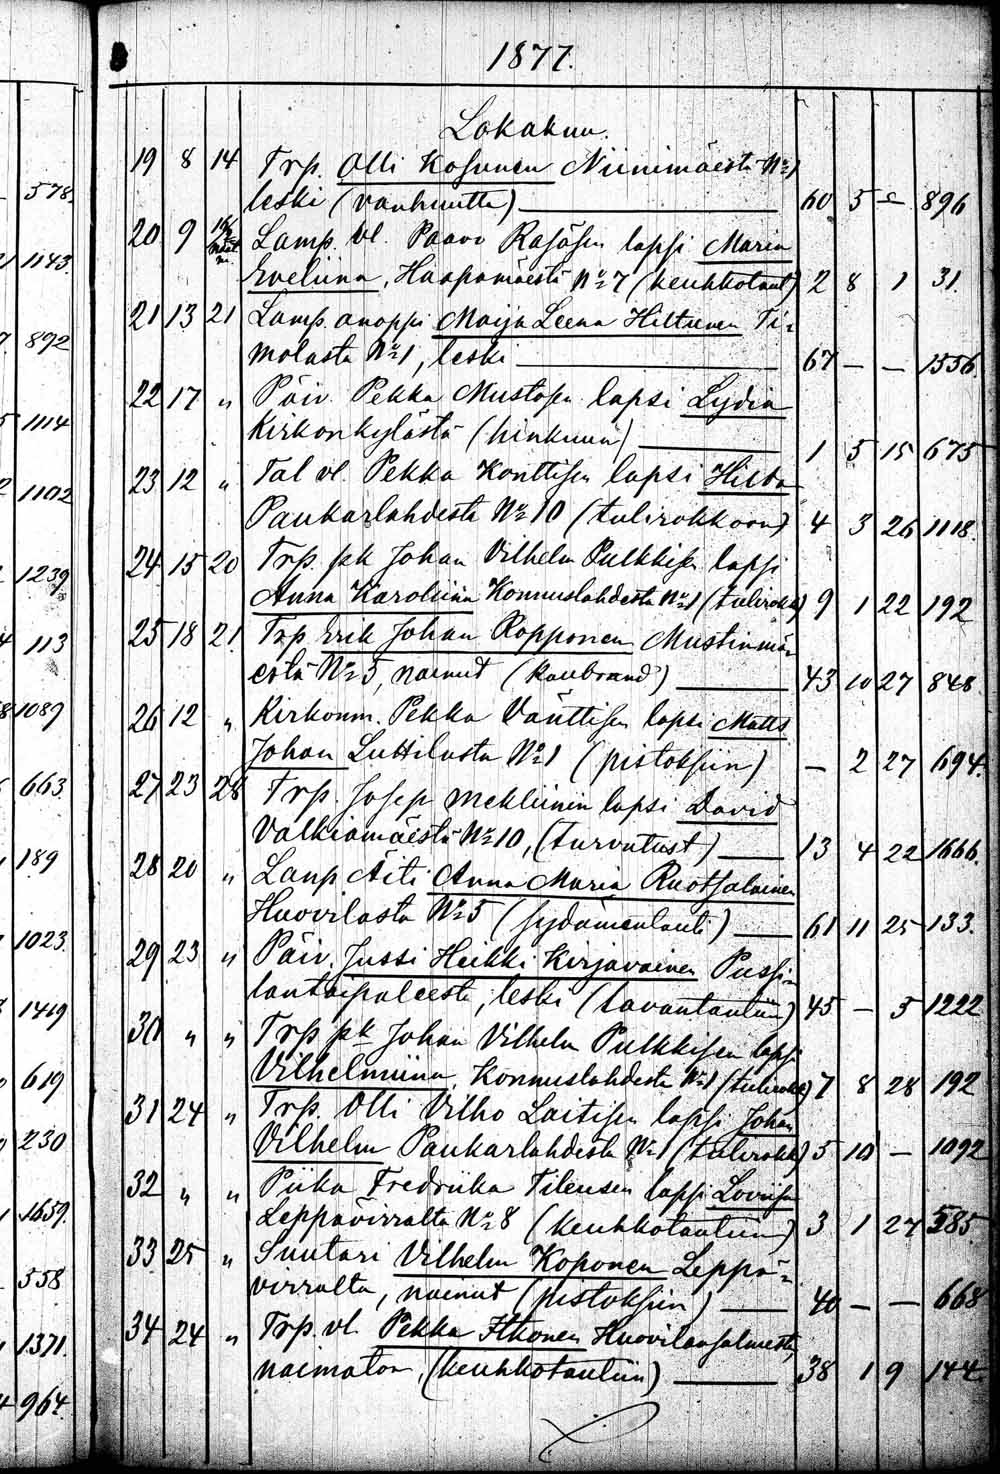 1877.
Lokakuu.
578.
1143.
892
1114
1102
1239
113
1089
663.
189
1023.
1419
619
230
1659.
558
1371.
964.
19 8 14 Trp. Olli Kosunen Niinimäestä No 1
leski (vanhuutta) 60 5 – 896
20 9 Lamp. vl. Paavo Rasäsen lapsi Maria
Eveliina, Haapamäestä No 7 (keuhkotaut) 2 8 1 31.
21 13 21 Lamp. anoppi Maija Leena Hiltunen Ti-
molasta No 1, leski 67 – – 1556.
22 17 " Päiv. Pekka Mustosen lapsi Lydia
Kirkonkylästä (hinkuun) 1 5 15 675
23 12 " Tal vl. Pekka Konttisen lapsi Hilda
Paukarlahdesta No 10 (tulirokkoon) 4 3 26 1118.
24 15 20 Trp. pk Johan Vilhelm Pulkkisen lapsi
Anna Karoliina Konnuslahdesta No 1 (tulirokk) 9 1 22 192
25 18 21. Trp. Erik Johan Ropponen Mustinmä-
estä No 5, nainut (kallbrand) 43 10 27 848
26 12 " Kirkonm. Pekka Vänttisen lapsi Matts
Johan Luttilasta No 1 (pistoksiin) – 2 27 694.
27 23 28 Trp. Josep Mekliinin lapsi David
Valkiamäestä No 10, (turvutust) 13 4 22 1666.
28 20 " Lamp Äiti Anna Maria Ruotsalainen
Huovilasta No 5 (sydämentauti) 61 11 25 133.
29 23 " Päiv. Jussi Heikki Kirjavainen Pussi-
lantaipaleesta, leski (lavantautiin) 45 – 5 1222
30 " " Trp pk Johan Vilhelm Pulkkisen lapsi
Vilhelmiina, Konnuslahdesta No 1 (tulirokk) 7 8 28 192
31 24 " Trp. Olli Vilho Laitisen lapsi Johan
Vilhelm Paukarlahdesta No 1 (tulirokk) 5 10 – 1092
32 " " Piika Fredriika Tilensen lapsi Loviisa
Leppävirralta No 8 (keuhkotautiin) 3 1 27 585.
33 25 " Suutari Vilhelm Koponen Leppä-
virralta, nainut (pistoksiin) 40 – – 668
34 24 " Trp. vl. Pekka Itkonen Huovilansalmesta,
naimaton, (keuhkotautiin) 38 1 9 144.